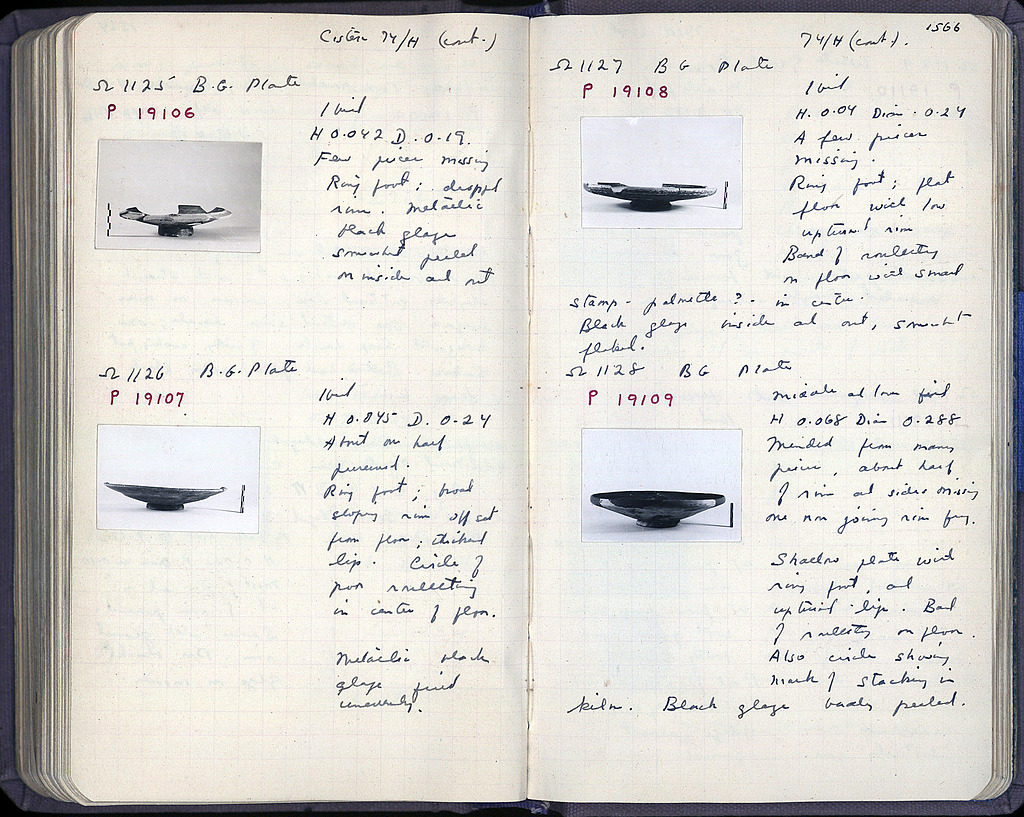 Cistern 74/H (cont.)
Ω 1125 B.G. Plate
P 19106
H 0.042 D. 0.19.
Few pieces missing
Ring foot;
rim. Metallic
black glaze
somewhat peeled
on inside and out
Ω 1126 B.G. Plate
P 19107
H 0.045 D. 0.24
About one half
preserved.
Ring foot; broad
sloping rim offset
from floor; thickened
lip. Circle of
poor rouletting
in center of floor.
Metallic black
glaze fired
unevenly.
1566
74/H (cont.).
Ω 1127 BG Plate
P 19108
H. 0.04 Diam. 0.24
A few pieces
missing.
Ring foot; flat
floor with low
upturned rim
Band of rouletting
on floor with small
stamp - palmette? - in center.
Black glaze inside and out, somewhat
flaked.
Ω 1128 BG Plate
P 19109
Middle and lower fill
H 0.068 Diam 0.288
Mended from many
pieces, about half
of rim and sides missing
one non joining rim frag.
Shallow plate with
ring foot, and
upturned lip. Band
of rouletting on floor.
Also circle showing
mark of stacking in
kiln. Black glaze badly peeled.